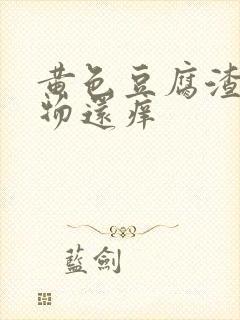 黄色豆腐渣
物還痒
藍劍